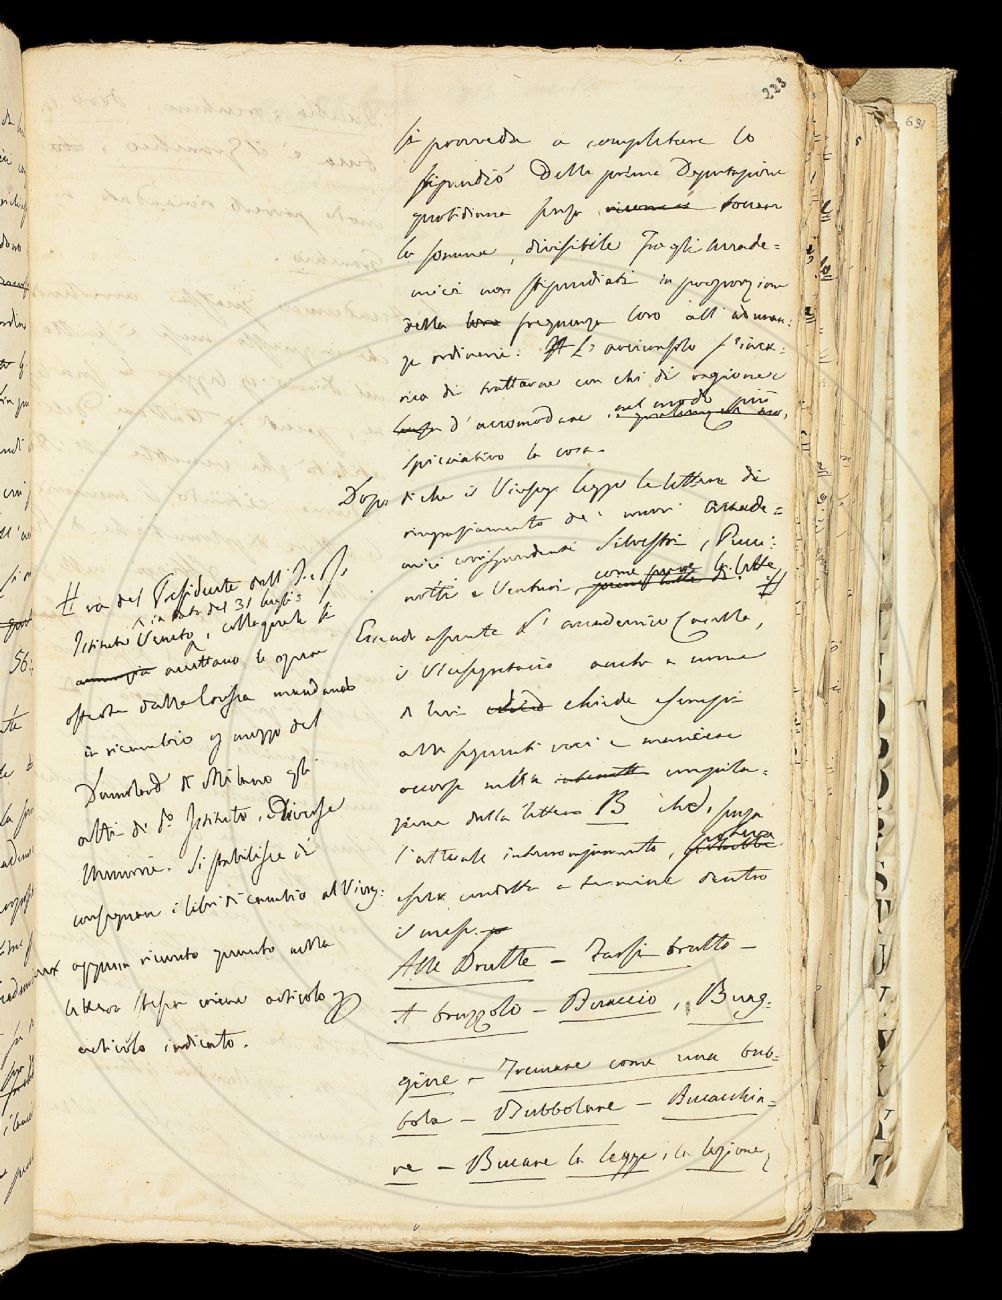 223
si provveda a completare lo
stipendio della prima Deputazione
quotidiana senza toccar
la somma, divisibile fra gli Accade=
mici non stipendiati in proporzione
della frequenza loro all' adunan:
ze ordinarie. L' Arciconsolo s' inca=
rica di trattarne con chi di ragione e
d' accomodare nel modo più
spicciativo la cosa.
Dopo di che il Viceseg legge le lettere di
ringraziamento de' nuovi Accade=
mici corrispondenti Silvestri, Pucci:
notti e Venturi, come pure la lette #
Essendo assente l' accademico Casella,
il Vicesegretario anche a nome
di lui chiede esempi
alle seguenti voci e maniere
occorse nella compila=
zione della lettera B che, senza
l' attuale interrompimento, poteva
esser condotta a termine dentro
il mese.
Alle Brutte – Farsi brutto –
Abruzzolo – Buraccio, Bug=
gine – Tremare come una bub=
bola – Bubbolare – Bucacchia=
re – Bucare la legge, la lezione,
# ra del Presidente dell' I. e R.
Istituto Veneto, in data del 31 luglio, colla quale si
accettano le opere
offerte dalla Crusca mandando
in ricambio per mezzo del
di Milano gli
atti di do. Istituto, e Diverse
Memorie. Si stabilisce di
consegnare i libri di cambio al Viceseg:
appena ricevuto quanto nella
lettera stessa viene articolo per
articolo indicato.